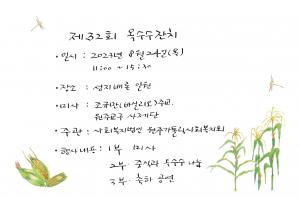 제32회 옥수수잔치
• 일시 : 2023년 8월 24일(목)
11:00 ~ 15:30
• 장소 : 성지배움 안전
• 미사 : 조규만(바실리오)주교,
원주교구 사제단
• 주관 : 사회복지법인 원주가톨릭사회복지회
• 행사내용 : 1부 미사
2부 중식과 옥수수 나눔
3부 축하 공연